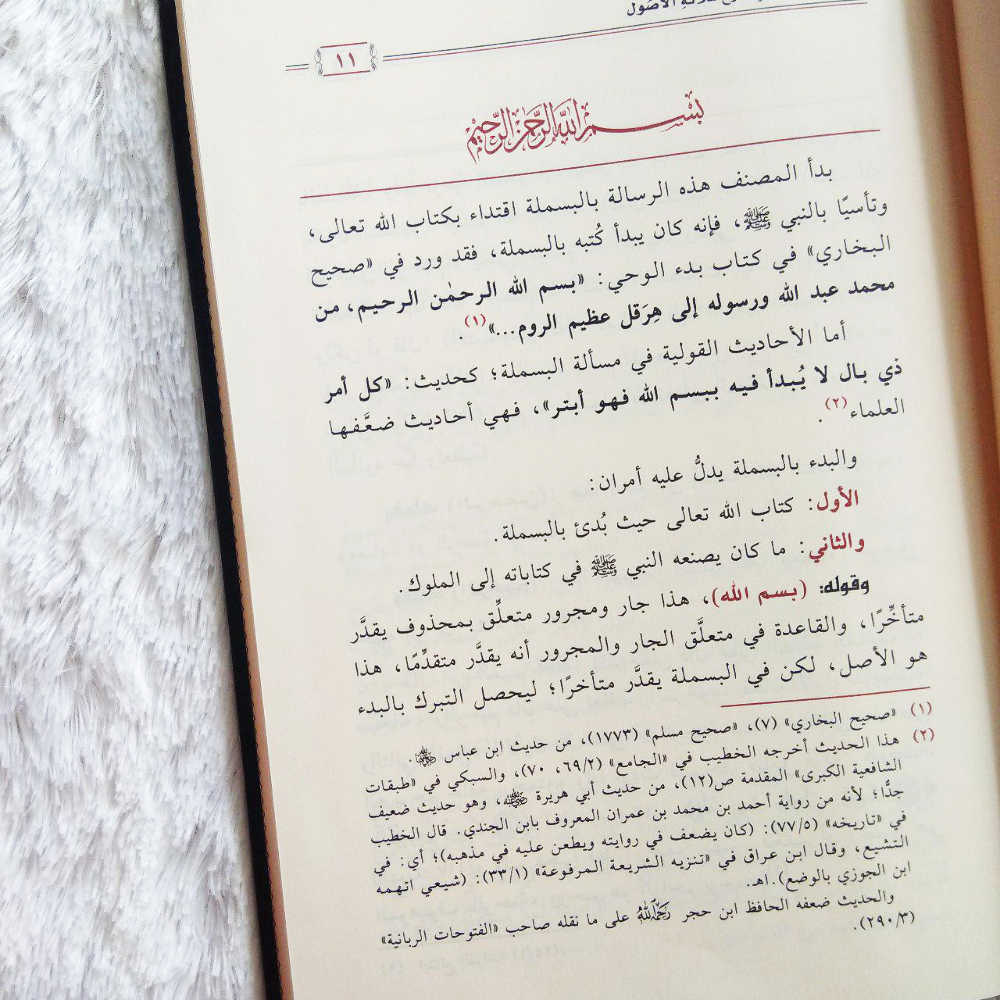 الأصول
١١
بسم الله الرحمن الرحيم
بدأ المصنف هذه الرسالة بالبسملة اقتداء بكتاب الله تعالى،
وتأسيًا بالنبي ﷺ، فإنه كان يبدأ كُتبه بالبسملة، فقد ورد في «صحيح
البخاري» في كتاب بدء الوحي: «بسم الله الرحمٰن الرحيم، من
محمد عبد الله ورسوله إلى هِرَقل عظيم الروم...»(١).
أما الأحاديث القولية في مسألة البسملة؛ كحديث: «كل أمر
ذي بال لا يُبدأ فيه ببسم الله فهو أبتر»، فهي أحاديث ضعَّفها
العلماء(٢).
والبدء بالبسملة يدلُّ عليه أمران:
الأول: كتاب الله تعالى حيث بُدئ بالبسملة.
والثاني: ما كان يصنعه النبي ﷺ في كتاباته إلى الملوك.
وقوله: (بسم الله)، هذا جار ومجرور متعلِّق بمحذوف يقدَّر
متأخِّرًا، والقاعدة في متعلَّق الجار والمجرور أنه يقدَّر متقدِّمًا، هذا
هو الأصل، لكن في البسملة يقدَّر متأخرًا؛ ليحصل التبرك بالبدء
(١) «صحيح البخاري» (٧)، «صحيح مسلم» (١٧٧٣)، من حديث ابن عباس .
(٢) هذا الحديث أخرجه الخطيب في «الجامع» (٦٩/٢، ٧٠)، والسبكي في «طبقات
الشافعية الكبرى» المقدمة ص(١٢)، من حديث أبي هريرة ، وهو حديث ضعيف
جدًّا؛ لأنه من رواية أحمد بن محمد بن عمران المعروف بابن الجندي. قال الخطيب
في «تاريخه» (٧٧/٥): (كان يضعف في روايته ويطعن عليه في مذهبه)؛ أي: في
التشيع، وقال ابن عراق في «تنزيه الشريعة المرفوعة» (٣٣/١): (شيعي اتهمه
ابن الجوزي بالوضع).اهـ.
والحديث ضعفه الحافظ ابن حجر رَحِمَهُ اللهُ على ما نقله صاحب «الفتوحات الربانية»
(٢٩٠/٣).